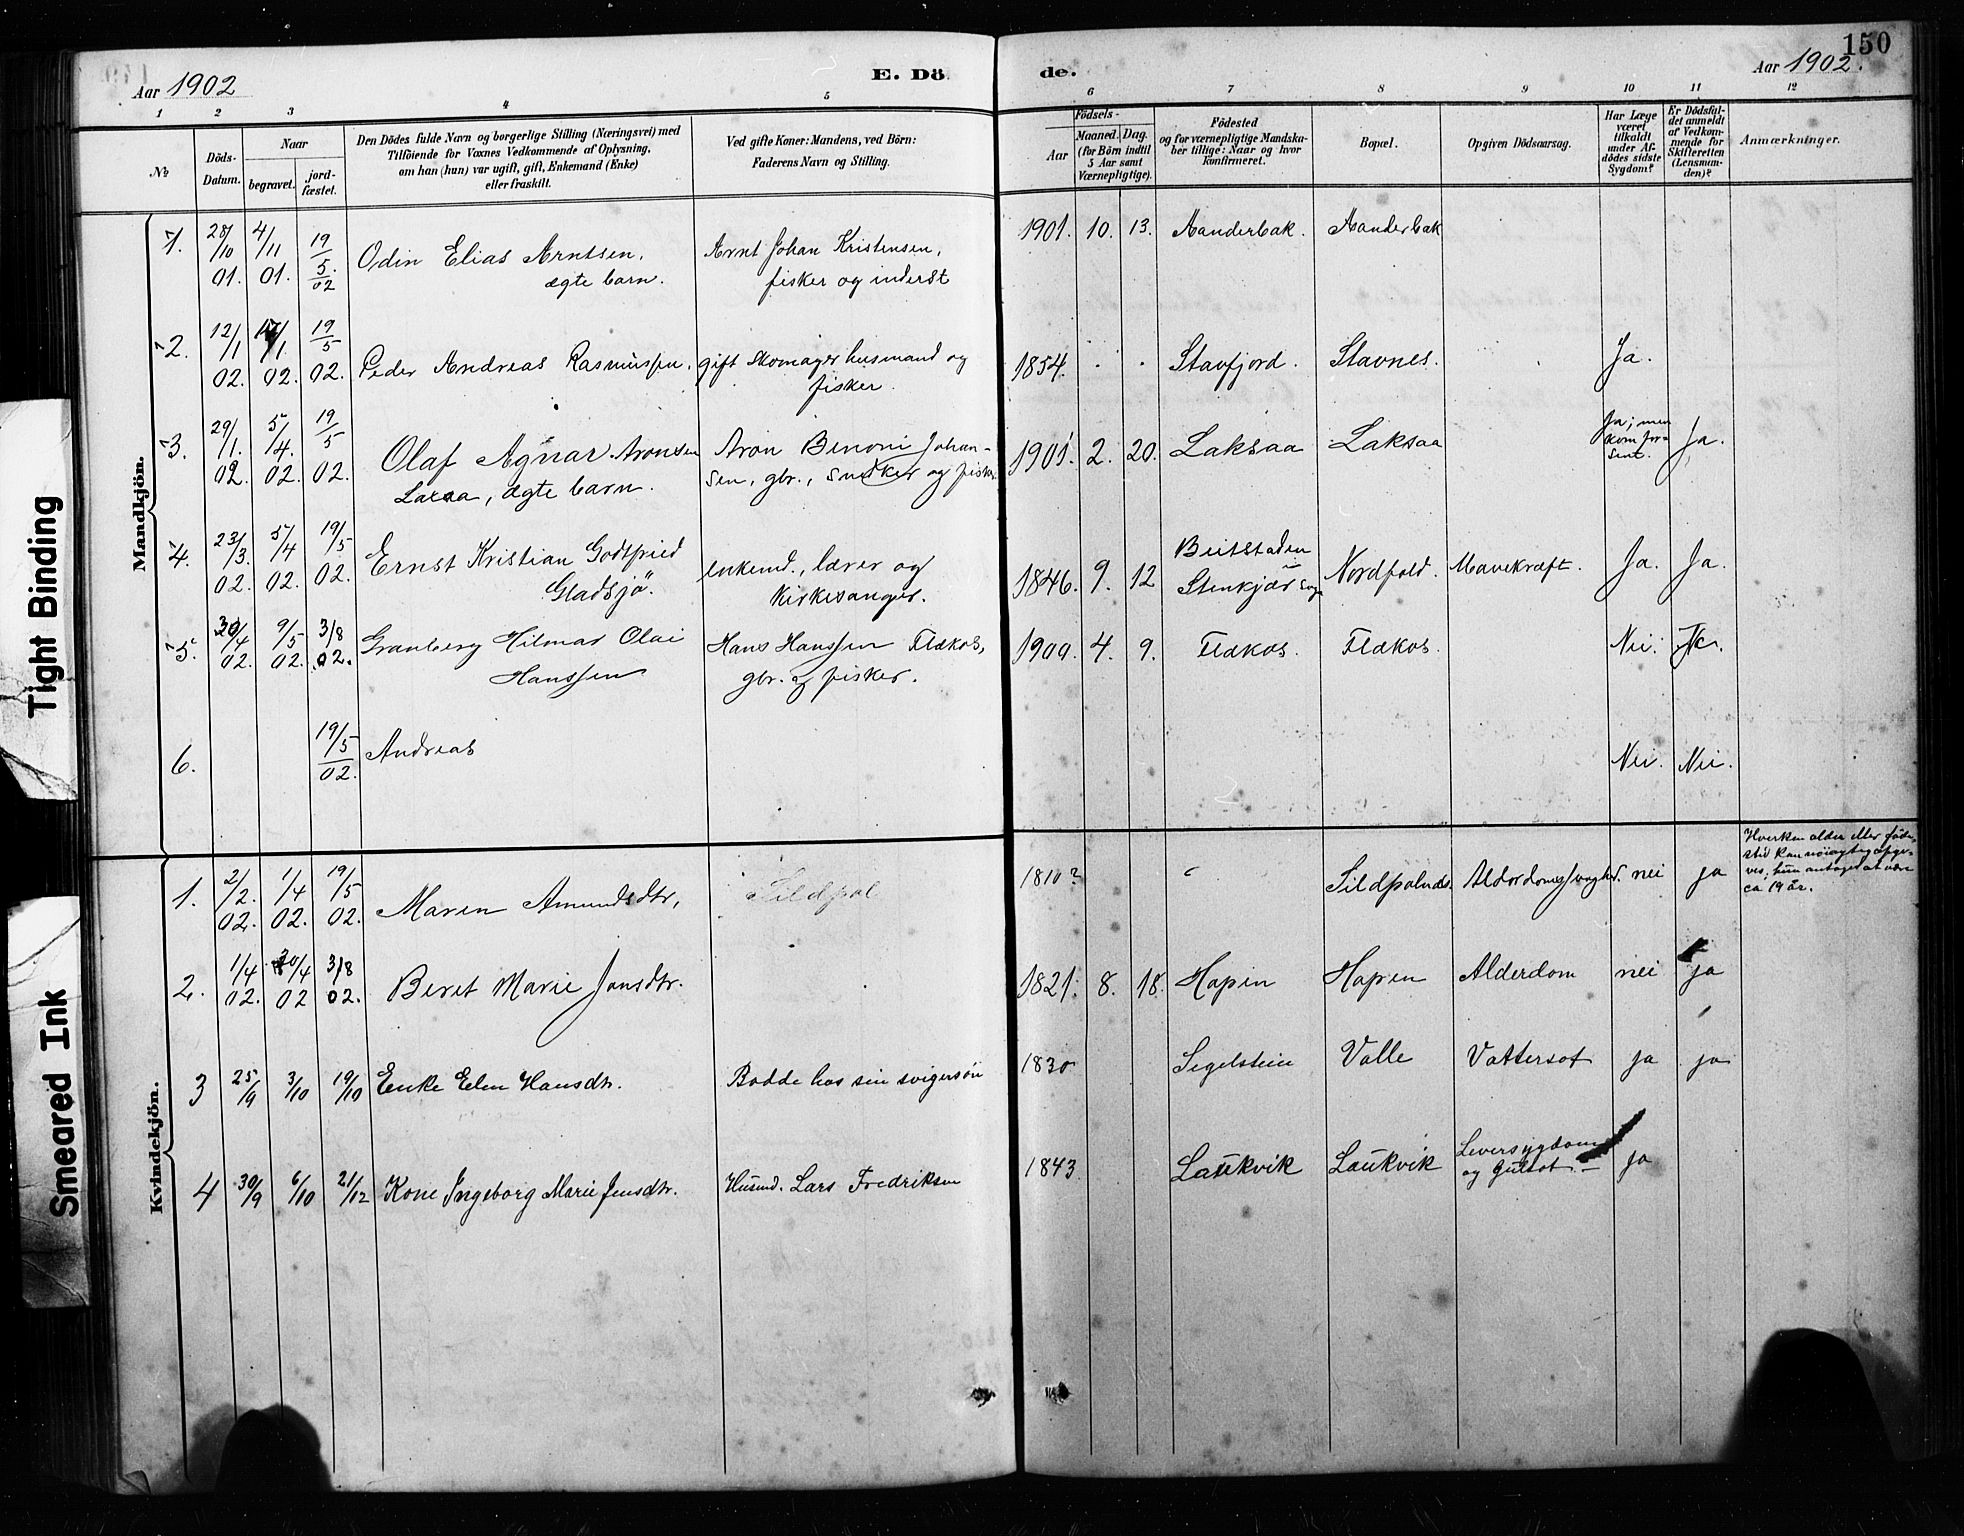 150
Aar 1902
E. Dö
de.
Aar 1902.
1 2 3 4 5 6 7 8 9 10 11 12
№
Döds-
Datum.
Naar
begravet.
jord-
fæstet.
Den Dödes fulde Navn og borgerlige Stilling (Næringsvei) med
Tilföiende for Voxnes Vedkommende af Oplysning,
om han (hun) var ugift, gift, Enkemand (Enke)
eller fraskilt.
Ved gifte Koner: Mandens, ved Börn:
Faderens Navn og Stilling.
Födsels-
Aar
Maaned. Dag.
(for Börn indtil
5 Aar samt
Værnepligtige).
Födested
og for værnepligtige Mandska-
ber tillige: Naar og hvor
konfirmeret.
Bopæl.
Opgiven Dödsaarsag.
Har Læge
været
tilkaldt
under Af-
dödes sidste
Sygdom?
Er Dödsfal-
det anmeldt
af Vedkom-
mende for
Skifteretten
(Lensman-
den)?
Anmærkninger.
Mandkjön.
1. 28/10 01. 4/11 01. 19/5 02 Odin Elias Arntsen, Arnt Johan Kristensen, 1901. 10. 13. Aanderbak. Aanderbak
ægte barn. fisker og inderst
2. 12/1 02. 1. 02. 19/5 02. Peder Andreas Rasmussen, gift Skomager husmand og 1854. Stavfjord. Stavnes. Ja.
fisker.
3. 29/1. 02. 5/4. 02. 19/5 02. Olaf Agnar Aronsen Aron Benoni Johan- 1901. 2. 20. Laksaa Laksaa Ja; men Ja.
kom for
sent.
Laxaa, ægte barn. sen, gbr., snedker og fisker
4. 23/3. 02. 5/4 02. 19/5 02. Ernst Kristian Godtfried enkemd., lærer og 1846. 9. 12 Beitstaden Nordfold. Mavekræft. Ja. Ja.
Gladsjö. Kirkesanger. Stenkjær
5. 30/4 02. 9/5 02. 3/8 02. Granberg Hilmar Olai Hans Hanssen Flækos, 1900. 4. 9. Flækos. Flækos. Nei.
Hanssen gbr. og fisker.
6. 19/5 02. Andreas Nei. Nei.
Kvindekjön.
1. 2/2. 02. 1/4 02. 19/5 02. Maren Amundsdtr, Sildpol 1810? Sildpolnes. nei ja
Hverken alder eller föde-
sted kan nöiagtig opgi-
ves; hun antages at være
ca 19 år.
2. 1/4 02. 30/4 02 3/8 02. Beret Marie Jonsdtr. 1821. 8. 18. Hopen Hopen Alderdom nei ja
3 25/9 3/10 19/10 Enke Elen Hansdtr. Bodde hos sin svigersön 1830 Segelstein Valle Vattersot ja ja
4 30/9 6/10 21/12 Kone Ingeborg Marie Jensdtr. Husmd. Lars Fredriksen 1843 Laukvik Laukvik Leversygdom ja
og Gulsot
Tight Binding
Smeared Ink